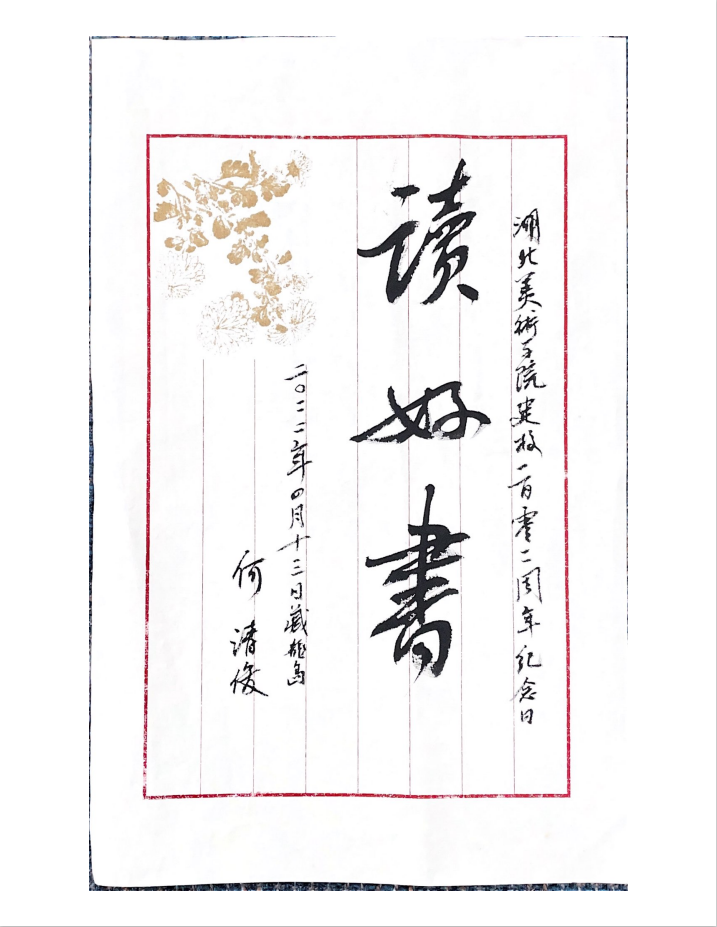 湖北美術学院建校一百零二周年纪念日
讀好書
二〇二二年四月十三日藏龍島
何清俊